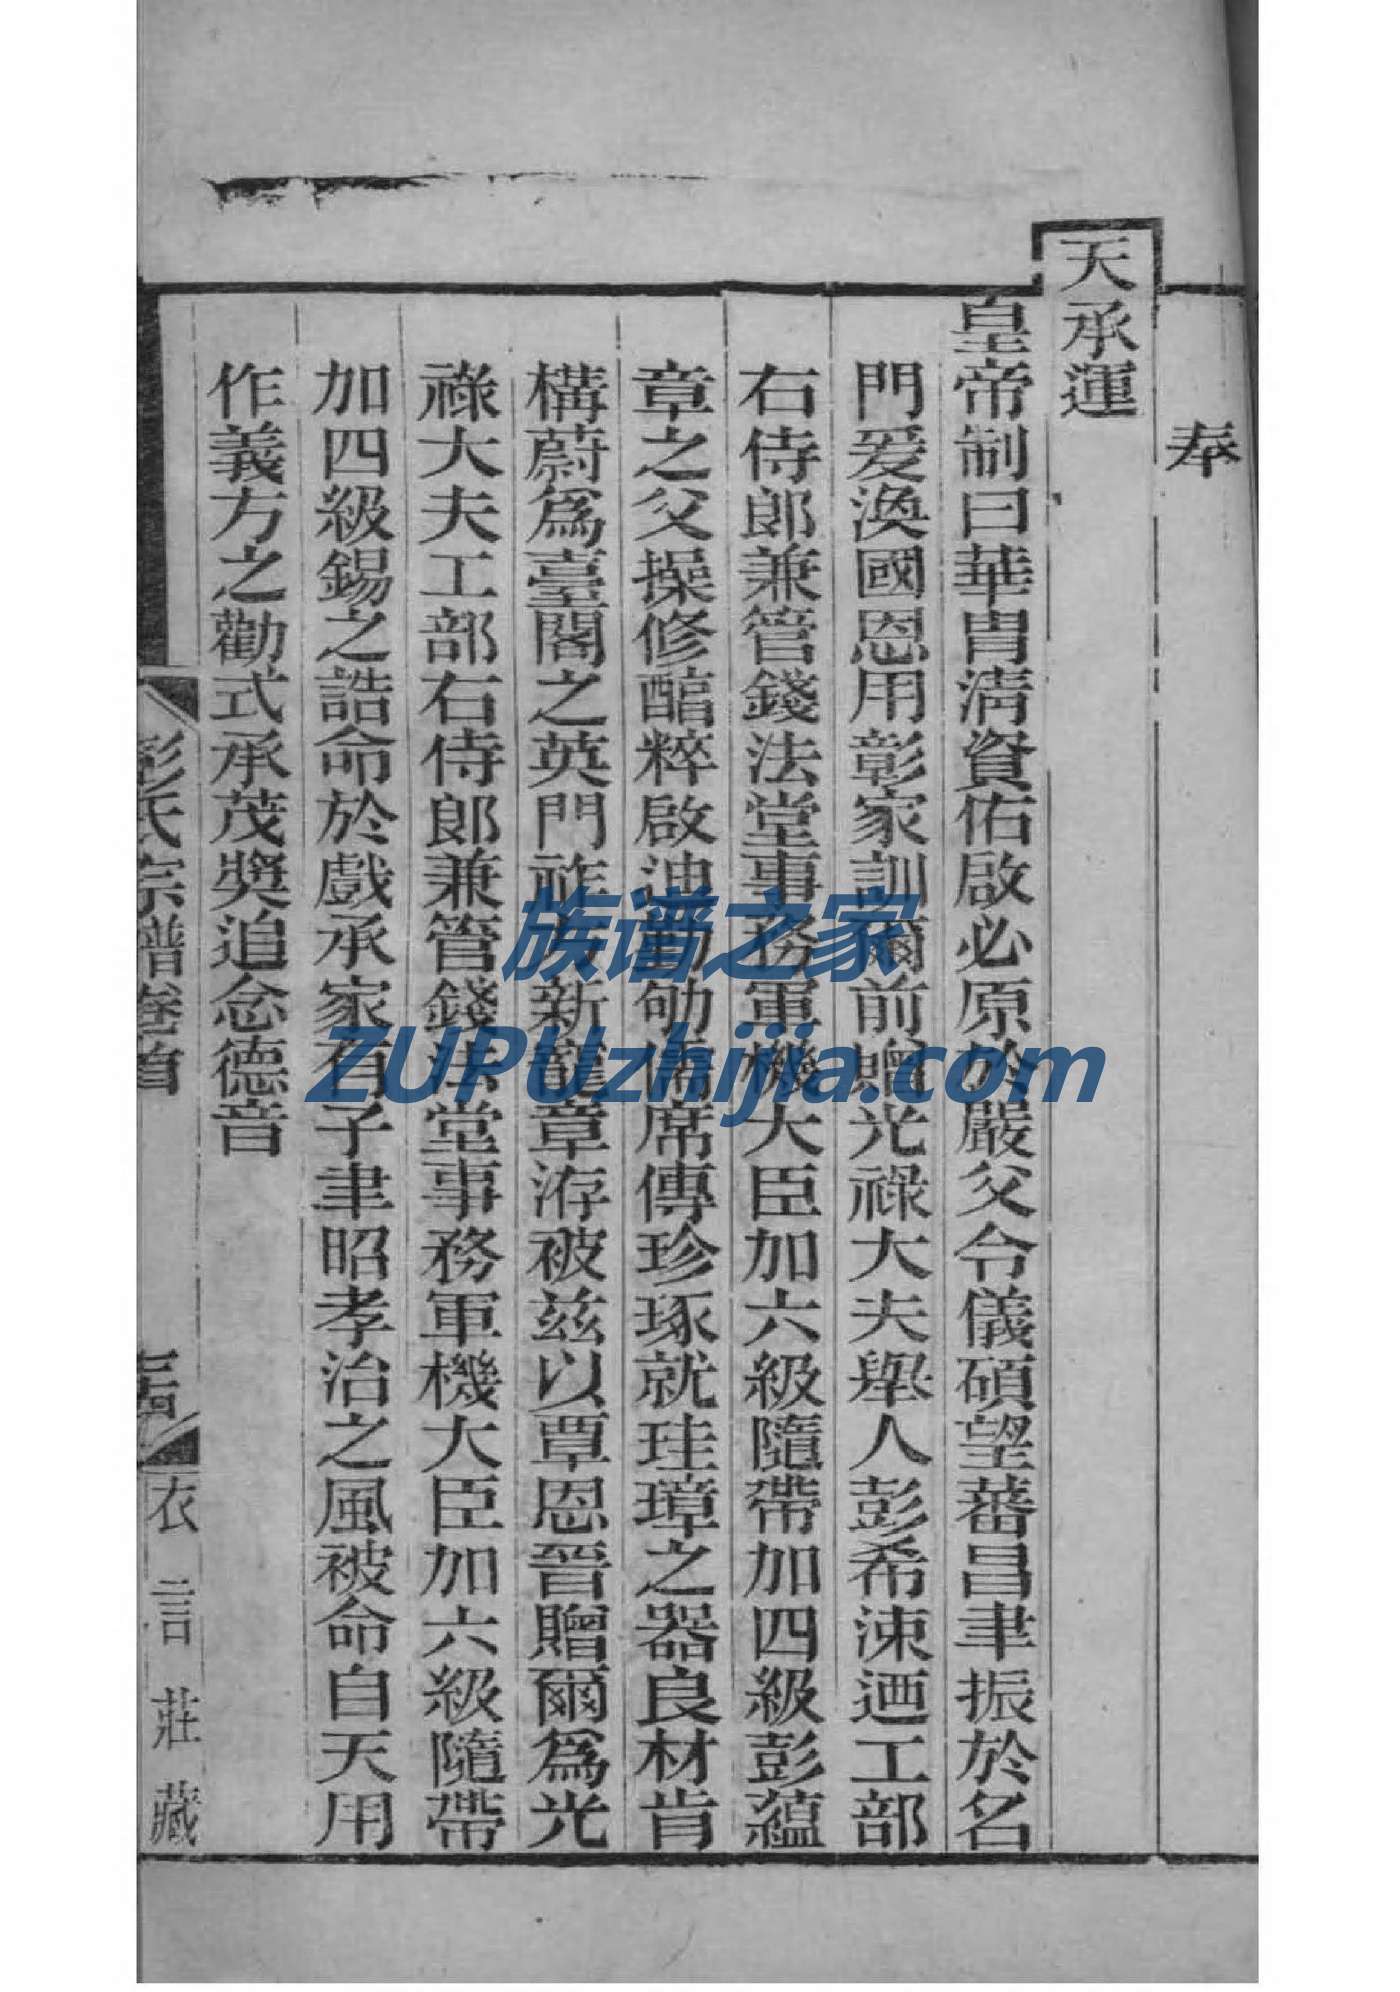 奉
天承運
皇帝制曰華胄淸資佑啟必原於嚴父令儀碩望蕃昌聿振於名
門爰渙國恩用彰家訓爾前贈光祿大夫舉人彭希涑迺工部
右侍郎兼管錢法堂事務軍機大臣加六級隨帶加四級彭蘊
章之父操修醕粹啟迪勤劬儒席傳珍琢就珪璋之器良材肯
構蔚爲臺閣之英門祚方新寵章洊被茲以覃恩晉贈爾爲光
祿大夫工部右侍郎兼管錢法堂事務軍機大臣加六級隨帶
加四級錫之誥命於戲承家有子聿昭孝治之風被命自天用
作義方之勸式承茂奬追念德音
彭氏宗譜卷首
衣言莊藏
族谱之家
ZUPUzhijia.com